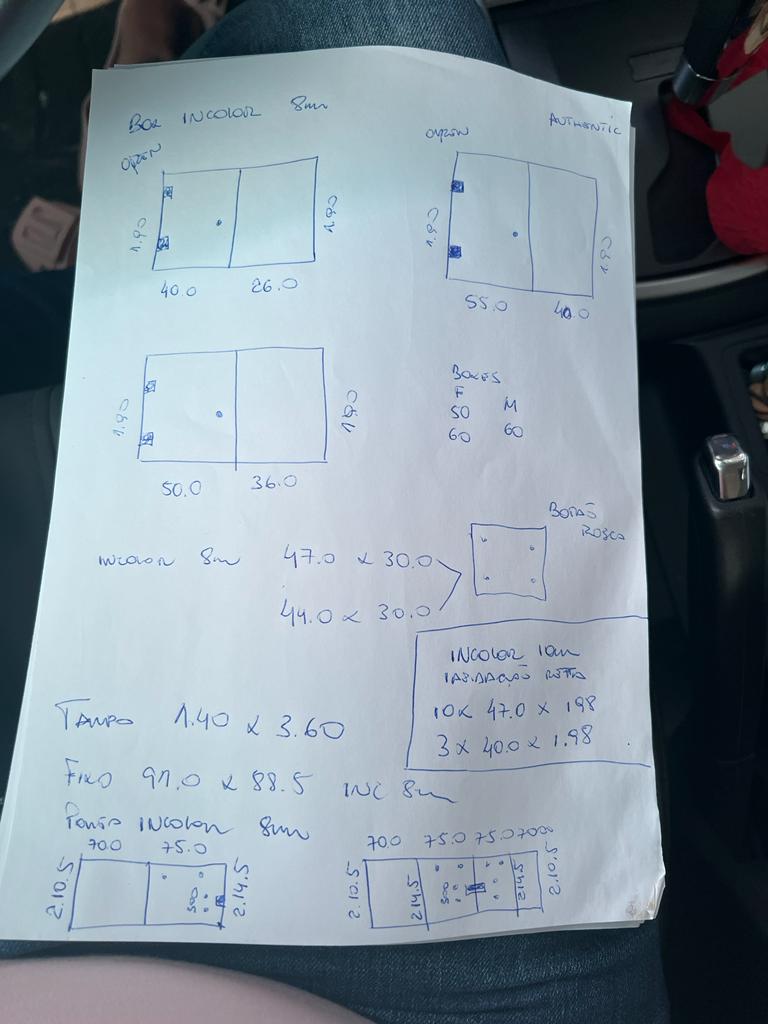 BOX INCOLOR 8m
AUTHENTIC
1.90
1.90
40.0 26.0
1.90
1.90
55.0 40.0
1.90
1.90
50.0 36.0
BOXES
F M
50 60
60
BOTÃO
ROSCA
INCOLOR 8m 47.0 x 30.0
44.0 x 30.0
INCOLOR 10m
RETA
10x 47.0 x 198
3 x 40.0 x 1.98
TAMPO 1.40 x 3.60
FIXO 91.0 x 88.5 INC 8m
PORTA INCOLOR 8m
70.0 75.0
2.10.5 500 2.14.5
70.0 75.0 75.0 70.0
2.10.5 214.5 500 214.5 2.10.5